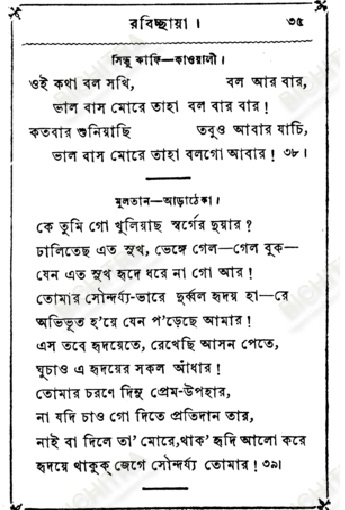 রবিচ্ছায়া । ৩৫
সিন্ধু কাফি—কাওয়ালী ।
ওই কথা বল সখি, বল আর বার,
ভাল বাস মোরে তাহা বল বার বার !
কতবার শুনিয়াছি তবুও আবার যাচি,
ভাল বাস মোরে তাহা বলগো আবার ! ৩৮ ।
মূলতান—আড়াঠেকা ।
কে তুমি গো খুলিয়াছ স্বর্গের দুয়ার ?
ঢালিতেছ এত সুখ, ভেঙ্গে গেল—গেল বুক—
যেন এত সুখ হৃদে ধরে না গো আর !
তোমার সৌন্দর্য্য-ভারে দুর্ব্বল হৃদয় হা—রে
অভিভূত হ'য়ে যেন প'ড়েছে আমার !
এস তবে হৃদয়েতে, রেখেছি আসন পেতে,
ঘুচাও এ হৃদয়ের সকল আঁধার !
তোমার চরণে দিনু প্রেম-উপহার,
না যদি চাও গো দিতে প্রতিদান তার,
নাই বা দিলে তা' মোরে,থাক' হৃদি আলো করে
হৃদয়ে থাকুক্ জেগে সৌন্দর্য্য তোমার ! ৩৯।